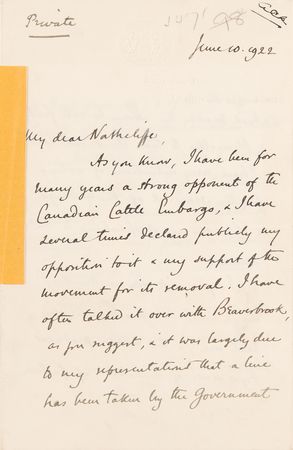 Private
June 10. 1922
My dear Northcliffe,
As you know, I have been for
many years a strong opponent of the
Canadian Cattle Embargo, & I have
several times declared publicly my
opposition to it & my support of the
movement for its removal. I have
often talked it over with Beaverbrook,
as you suggest, & it was largely due
to my representations that a line
has been taken by the Government